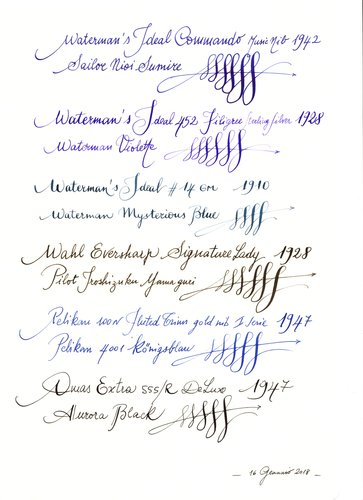 Waterman's Ideal Commando Music Nib 1942
Sailor Nioi Sumire
Waterman's Ideal 452 Filigree Sterling Silver 1928
Waterman Violette
Waterman's Ideal #14 EM 1910
Waterman Mysterious Blue
Wahl Eversharp Signature Lady 1928
Pilot Iroshizuku Yama guri
Pelikan 100N gold nib I Serie 1947
Pelikan 4001 Königsblau
Omas Extra 555/R DeLuxe 1947
Aurora Black
- 16 Gennaio 2018 -